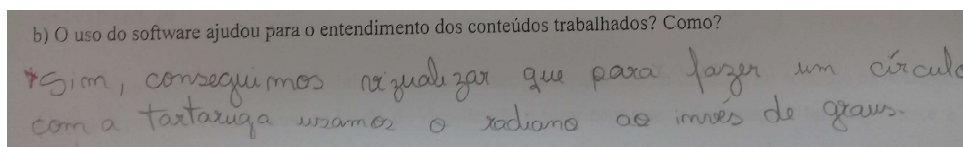 b) O uso do software ajudou para o entendimento dos conteúdos trabalhados? Como?
*Sim, conseguimos vizualizar que para fazer um círculo
com a tartaruga usamos o radiano ao invés de graus.